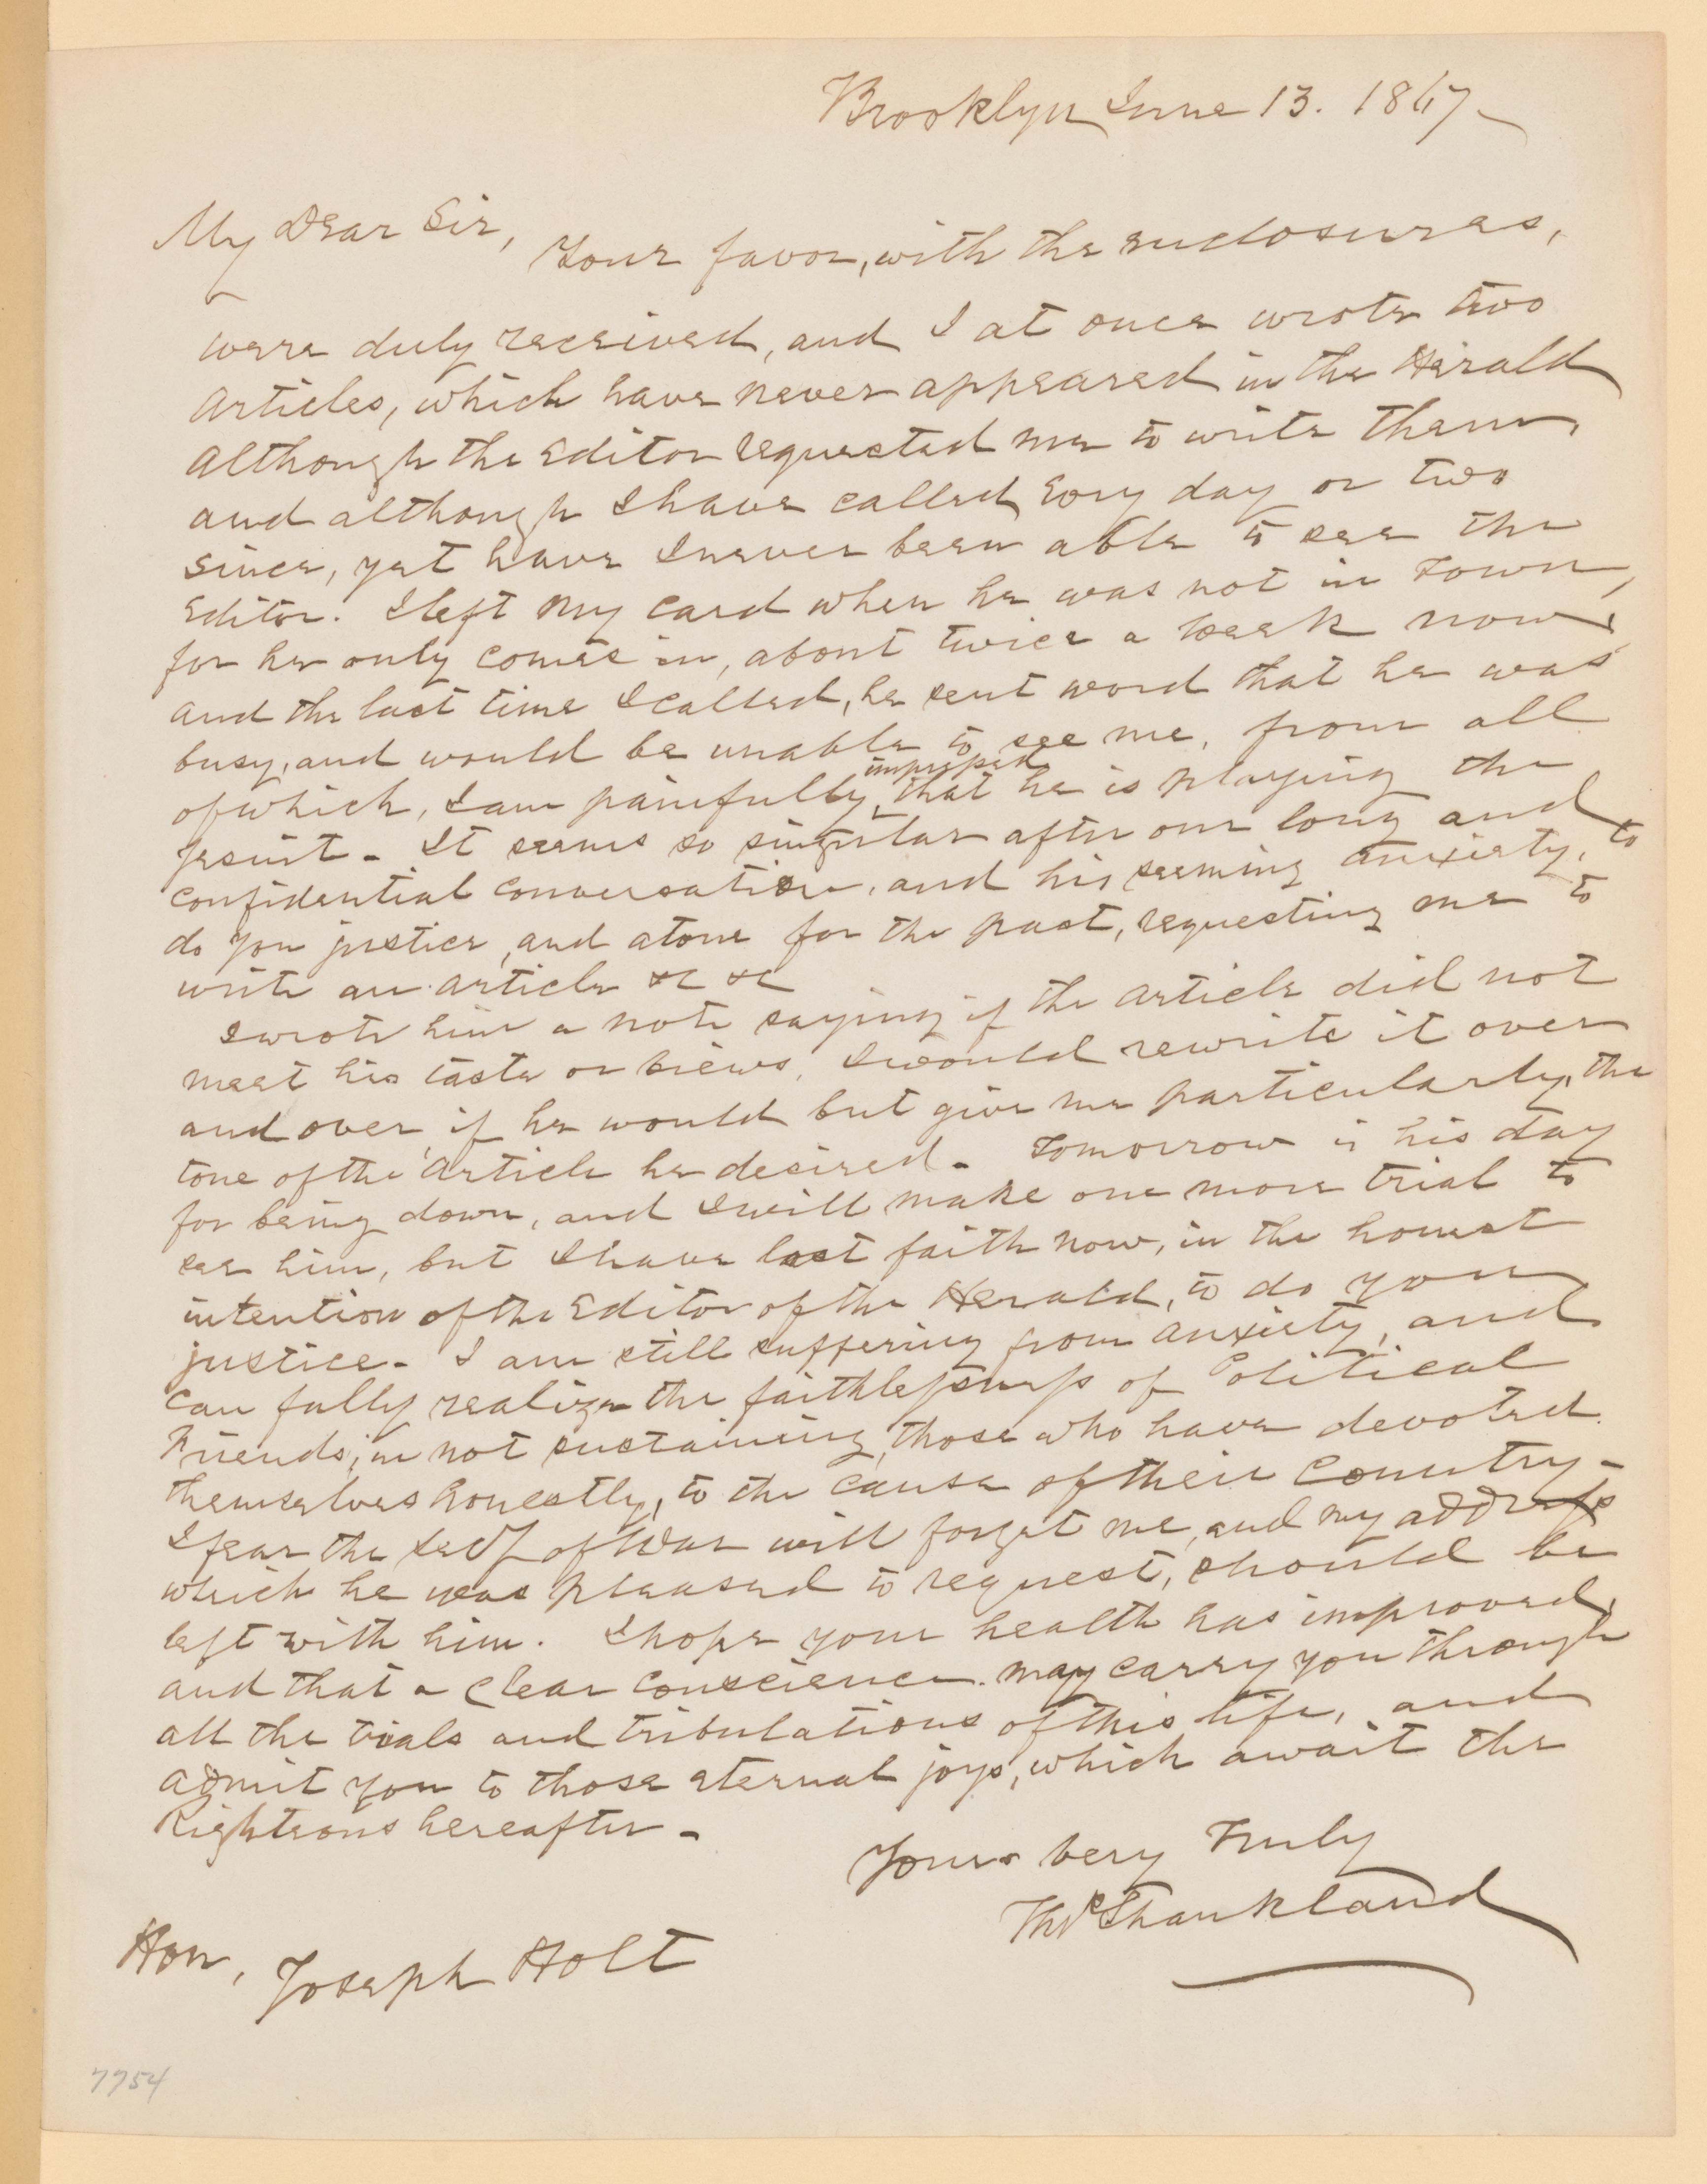 Brooklyn June 13. 1867
My Dear Sir,
Your favor, with the enclosures,
were duly received, and I at once wrote two
articles, which have never appeared in the Herald
although the Editor requested me to write them,
and although I have called every day or two
since, yet have I never been able to see the
Editor. I left my card when he was not in Town,
for he only comes in, about twice a week now,
and the last time I called, he sent word that he was
busy, and would be unable to see me, from all
impressed
of which, I am painfully, that he is playing the
Jesuit - It seems so singular after our long and
confidential conversation, and his seeming anxiety, to
do you justice, and atone for the past, requesting me to
write an article &c &c
I wrote him a note saying if the article did not
meet his taste or views, I would rewrite it over
and over, if he would but give me particularly, the
tone of the article he desired - Tomorrow is his day
for being down, and I will make one more trial to
see him, but I have lost faith now, in the honest
intention of the Editor of the Herald, to do you
justice - I am still suffering from anxiety, and
can fully realize the faithlessness of Political
Friends, in not sustaining, those who have devoted
themselves honestly, to the cause of their Country -
I fear the Secy of War will forget me, and my address
which he was pleased to request, should be
left with him. I hope your health has improved,
and that a clear conscience may carry you through
all the trials and tribulations of this life, and
admit you to those eternal joys, which await the
Righteous hereafter -
Yours very Truly
Thos Shankland
Hon, Joseph Holt
7754